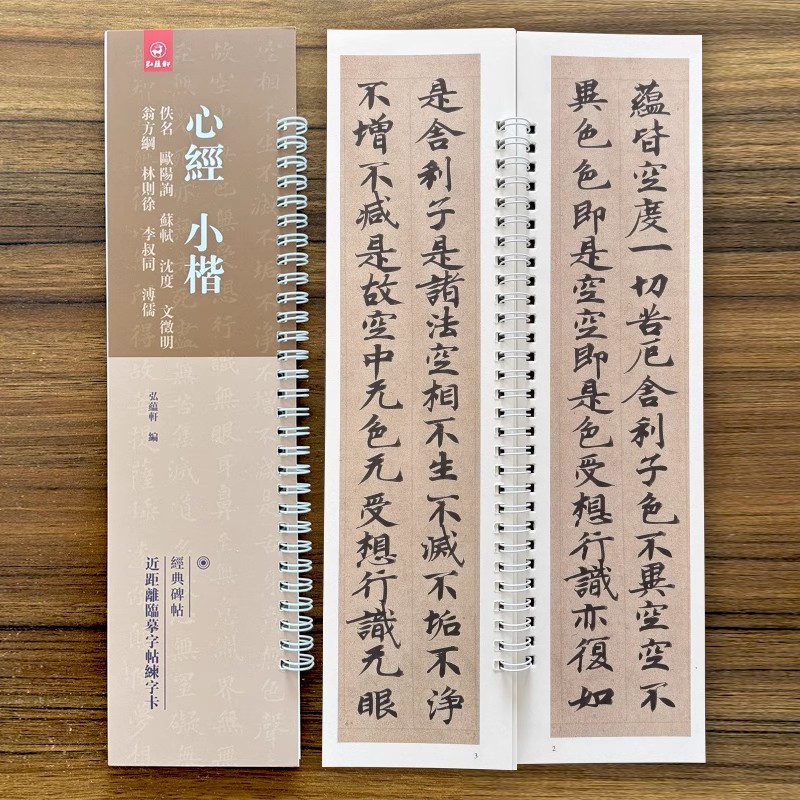 弘蘊軒
心經 小楷
佚名 歐陽詢 蘇軾 沈度 文徵明
翁方綱 林則徐 李叔同 溥儒
弘蘊軒 編
經典碑帖
近距離臨摹字帖練字卡
蘊皆空度一切苦厄舍利子色不異空空不
異色色即是空空即是色受想行識亦復如
2
是舍利子是諸法空相不生不滅不垢不淨
不增不減是故空中无色无受想行識无眼
3